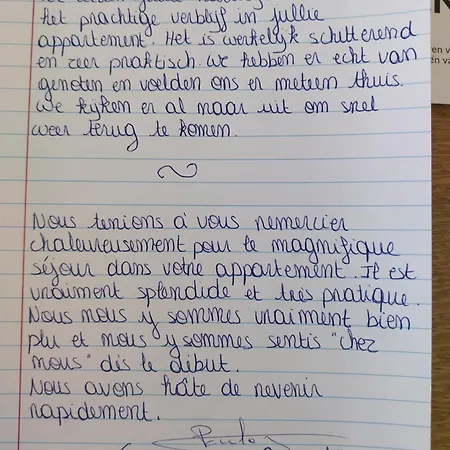 het prachtige verblijf in jullie
appartement. Het is werkelijk schitterend
en zeer praktisch. We hebben er echt van
genoten en voelden ons er meteen thuis.
We kijken er al maar uit om snel
weer terug te komen.
Nous tenions à vous remercier
chaleureusement pour le magnifique
séjour dans votre appartement. Il est
vraiment splendide et très pratique.
Nous nous y sommes vraiment bien
plu et nous y sommes sentis "chez
nous" dès le début.
Nous avons hâte de revenir
rapidement.